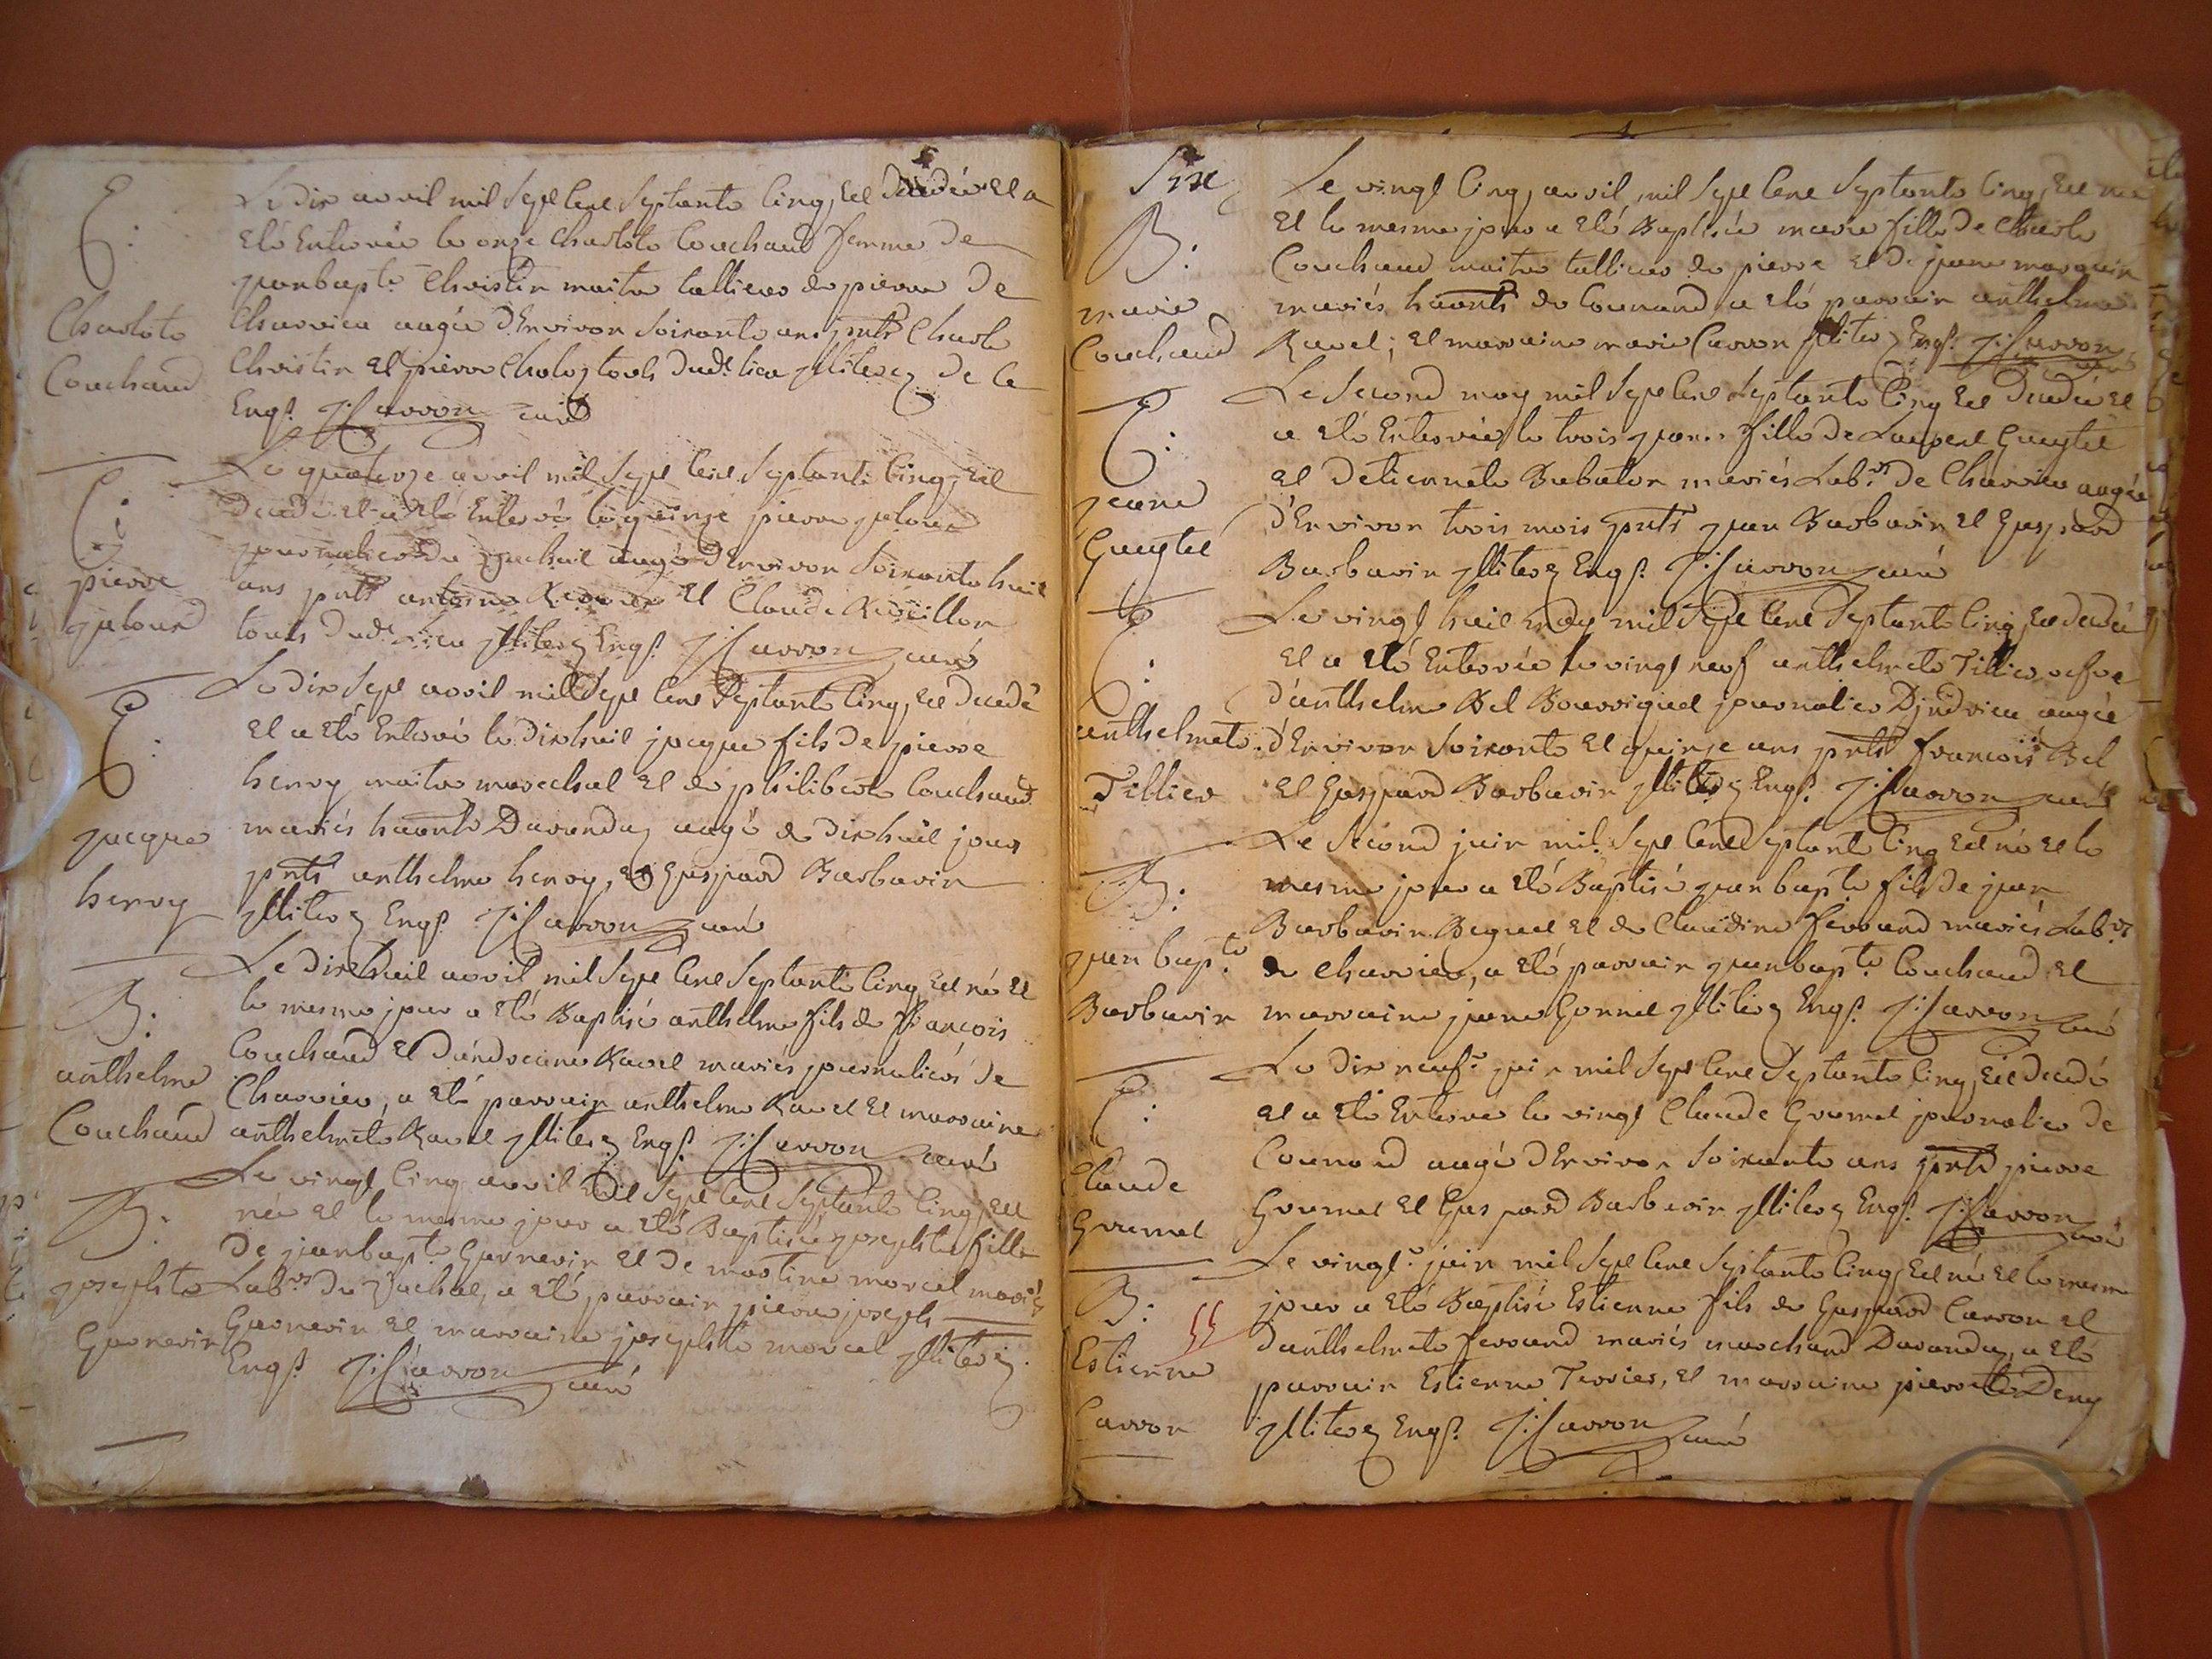 E:
Charlote
Couchaud
Le dix avril mil sept cent septante cinq, est decedée et a
eté enterrée le onze charlote couchaud femme de
jeanbapte christin maitre tallieur de pierre de
charvieu aagée d'environ soixante ans pnts charle
christin et pierre tous dudt lieu illiterez de ce
enqs J: Carron curé
E:
pierre
jaloud
Le quatorze avril mil sept cent septante cinq, est
decedé et a eté enterré le quinze pierre jaloud
journalier du aagé d'environ soixante huit
ans pnts antoine et Claude
tous dudt lieu illiterez enqs J: Carron curé
E:
jacque
henry
Le dix sept avril mil sept cent septante cinq, est decedé
et a eté enterré le dixhuit jacque fils de pierre
henry maitre marechal et de philiberte Couchaud
mariés haants Davanday aagé de dixhuit jours
pnts anthelme henry, et gaspard Barbarin
illiterez enqs J: Carron curé
B:
anthelme
Couchaud
Le dixhuit avril mil sept cent septante cinq est né et
le mesme jour a eté Baptisé anthelme fils de françois
Couchaud et d'andreanne Ravet mariés journaliers de
Charvieu, a eté parrain anthelme Ravet et marraine
anthelmete Ravet illiterez enqs J: Carron curé
B:
josephte
Garnerin
Le vingt cinq avril mil sept cent septante cinq, est
née et le mesme jour a eté Baptisée josephte fille
de jeanbapte Garnerin et de martine morcel mariés
Labrs du a eté parrain pierre joseph
Garnerin et marraine josephte morcel illiterez
enqs J: Carron curé
Sixe
B:
marie
Couchaud
Le vingt cinq, avril, mil sept cent septante cinq, est née
et le mesme jour a eté Baptisée marie fille de charle
Couchaud maitre tallieur de pierre et de jeane
mariés haants de Counand a eté parrain anthelme
Ravet; et marraine marie Carron illiterez enqs J: Carron
E:
jeane
Gueytet
Le second may mil sept cent septante cinq est decedée et
a eté enterrée le trois jeane fille de Laurent Gueytet
et detiennete Babolon mariés Labrs de Charvieu aagée
d'environ trois mois pnts jean Barbarin et Gaspard
Barbarin illiterez enqs J: Carron curé
E:
anthelmete
Tillier
Le vingt huit may mil sept cent septante cinq, est decedée
et a eté enterrée le vingt neuf anthelmete Tillier vefve
d'anthelme Bel Bourriquet journalier aagée
d'environ soixante et quinze ans pnts françois Bel
et Gaspard Barbarin illiterez enqs J: Carron curé
B:
jeanbapte
Barbarin
Le second juin mil sept cent septante cinq est né et le
mesme jour a eté Baptisé jeanbapte fils de jean
Barbarin Baquet et de Claudine ferrand mariés Labrs
de charvieu, a eté parrain jeanbapte Couchaud et
marraine jeane Gonnet illiterez enqs J: Carron curé
E:
Claude
Grumel
Le dix neuf juin mil sept cent septante cinq, est decedé
et a eté enterré le vingt Claude Grumel journalier de
Counand aagé d'environ soixante ans pnts pierre
Grumel et Gaspard Barbarin illiterez enqs J: Carron curé
B:
Estienne
Carron
55
Le vingt juin mil sept cent septante cinq, est né et le mesme
jour a eté Baptisé Estienne fils de Gaspard Carron et
danthelmete ferrand mariés marchand Davanday, a eté
parrain Estienne Terrier, et marraine pierrete Deny
illiterez enqs J: Carron curé